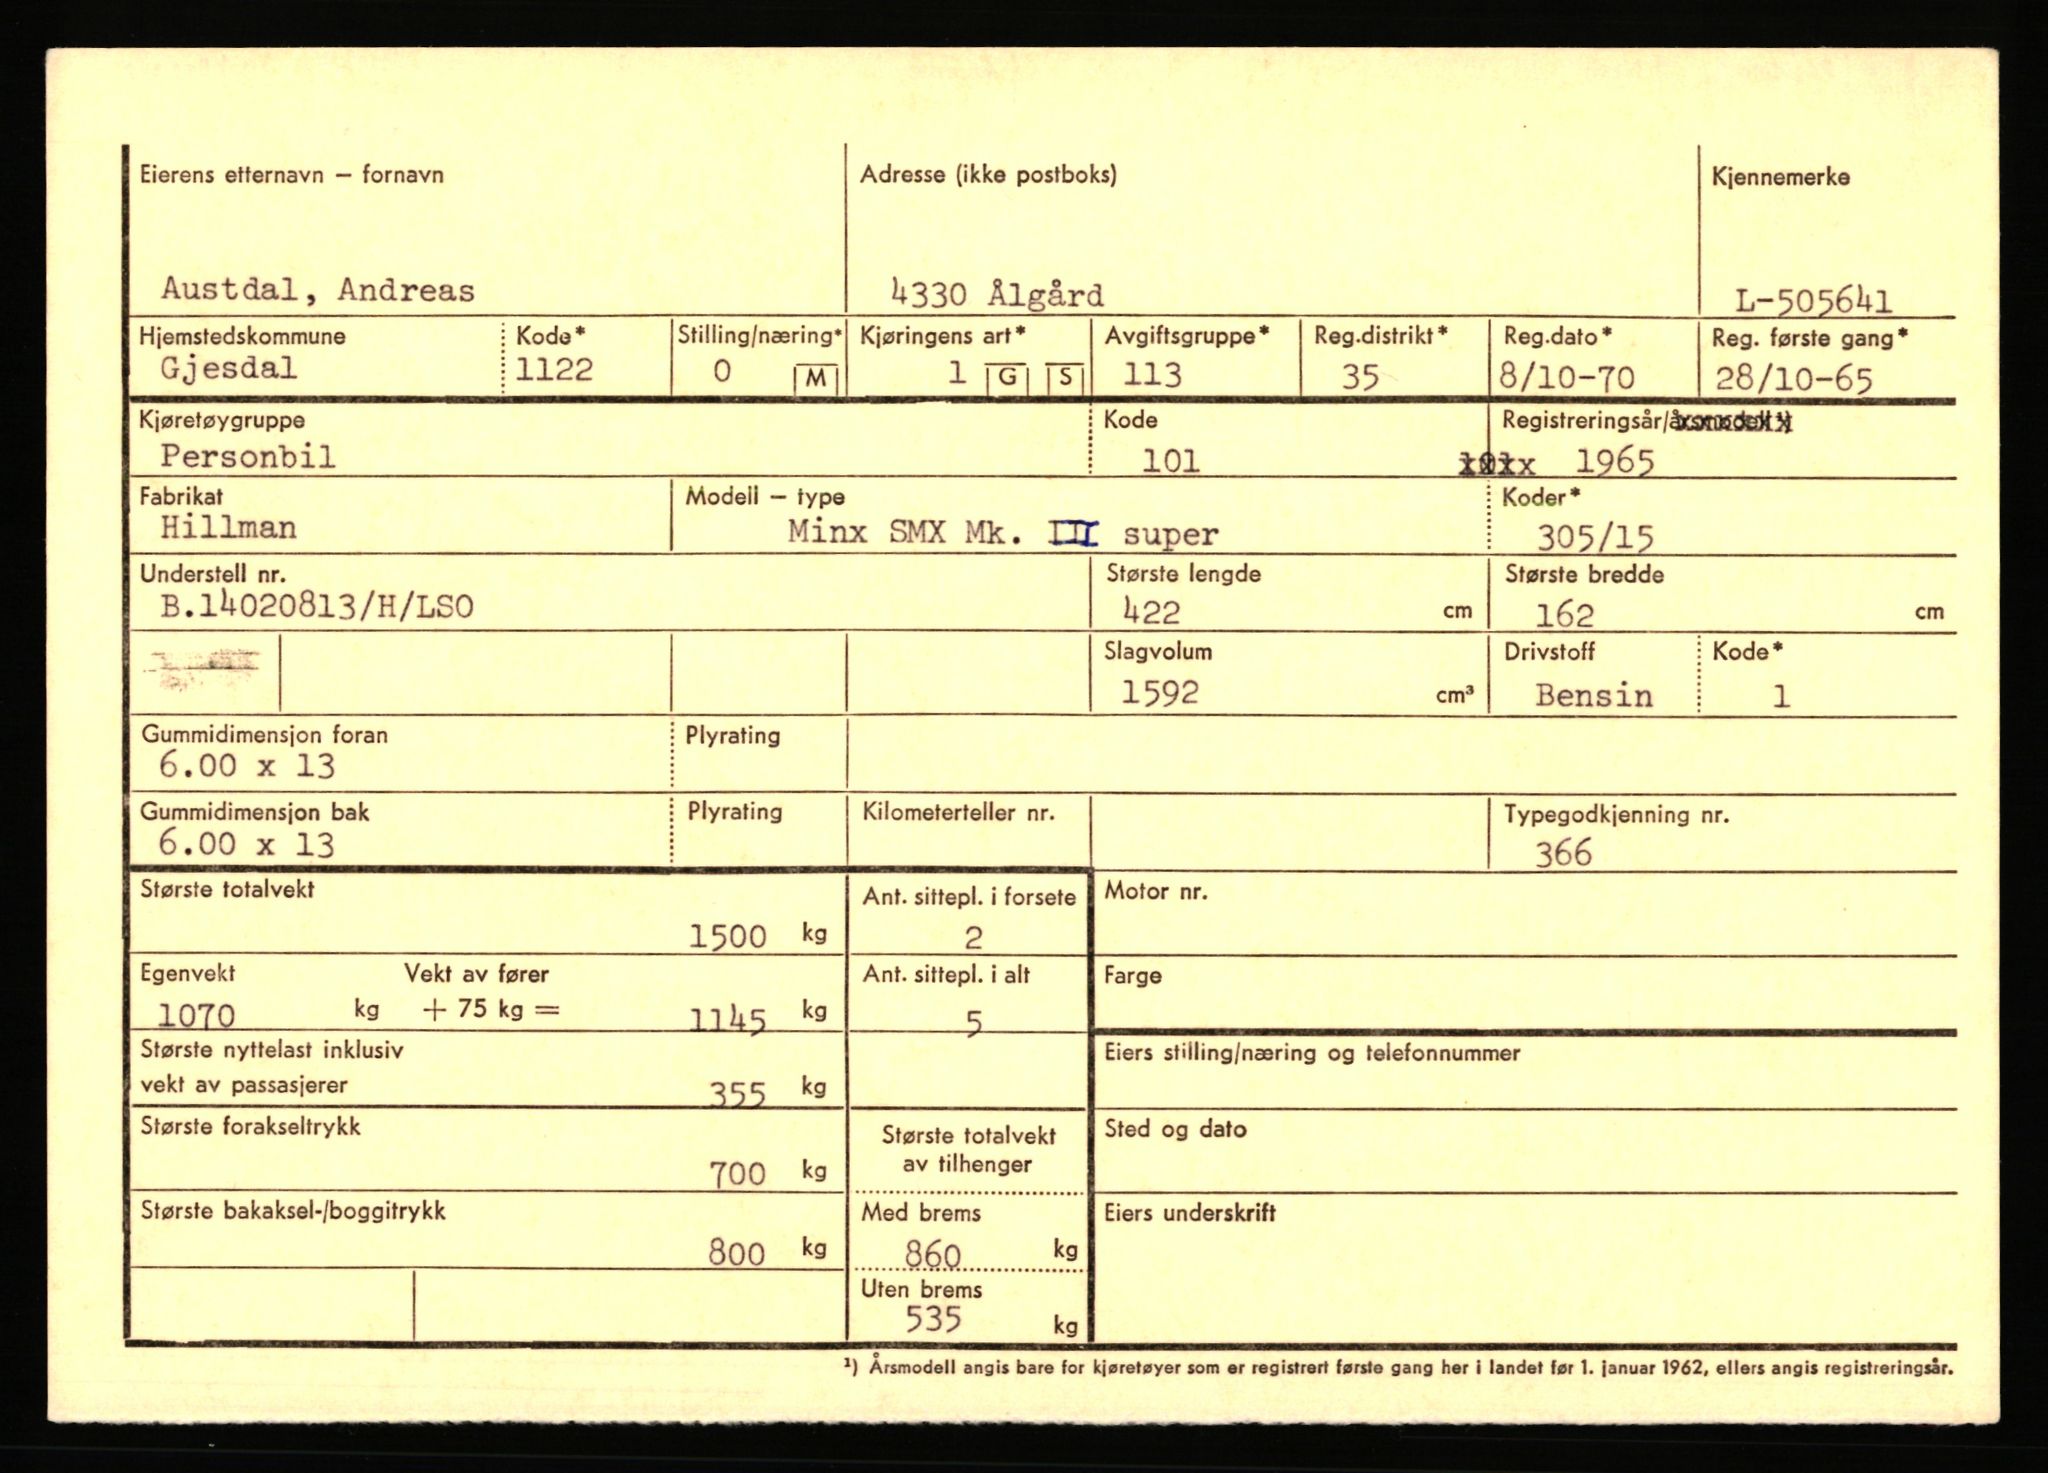 Eierens etternavn – fornavn
Adresse (ikke postboks)
Kjennemerke
Austdal, Andreas
4330 Ålgård
L-505641
Hjemstedskommune
Kode*
Stilling/næring*
Kjøringens art*
Avgiftsgruppe*
Reg.distrikt*
Reg.dato*
Reg. første gang*
Gjesdal
1122
0 M
1 G S
113
35
8/10-70
28/10-65
Kjøretøygruppe
Kode
Registreringsår/årsmodell ¹)
Personbil
101
1965
Fabrikat
Modell – type
Koder*
Hillman
Minx SMX Mk. III super
305/15
Understell nr.
Største lengde
Største bredde
B.14020813/H/LSO
422 cm
162 cm
Slagvolum
Drivstoff
Kode*
1592 cm³
Bensin
1
Gummidimensjon foran
Plyrating
6.00 x 13
Gummidimensjon bak
Plyrating
Kilometerteller nr.
Typegodkjenning nr.
6.00 x 13
366
Største totalvekt
Ant. sittepl. i forsete
Motor nr.
1500 kg
2
Egenvekt
Vekt av fører
Ant. sittepl. i alt
Farge
1070 kg + 75 kg = 1145 kg
5
Største nyttelast inklusiv
vekt av passasjerer
355 kg
Eiers stilling/næring og telefonnummer
Største forakseltrykk
700 kg
Største totalvekt
av tilhenger
Sted og dato
Største bakaksel-/boggitrykk
800 kg
Med brems
860 kg
Eiers underskrift
Uten brems
535 kg
¹) Årsmodell angis bare for kjøretøyer som er registrert første gang her i landet før 1. januar 1962, ellers angis registreringsår.